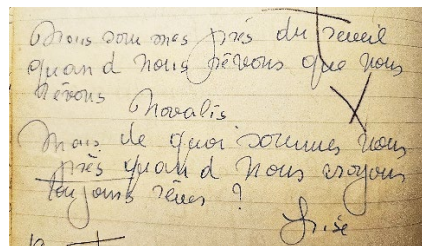 Nous sommes près du réveil
quand nous rêvons que nous
rêvons Novalis
Mais de quoi sommes nous
près quand nous croyons
toujours rêver ?